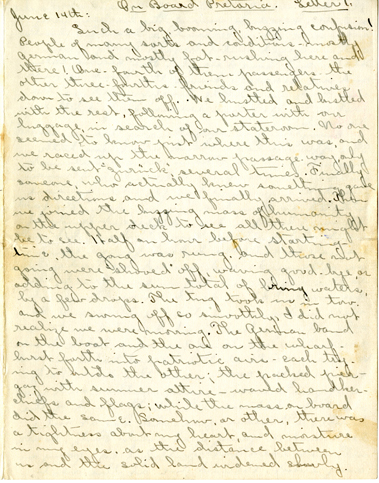 On Board Pretoria. Letter 1.
June 14th:
Such a big booming, buzzing confusion!
People of many sorts and conditions, mostly
German and mostly fat - rushing here and
there! One-fourth of them passengers - the
other three-fourths friends and relatives
down to see them off. We hustled and bustled
with the rest, following a porter with our
luggage, in search of our stateroom. No one
seemed to know just where it was, and
we raced up the narrow passage ways only
to be sent "zurück" several times. Finally
someone, who actually knew something gave
us directions and we finally arrived. Then
we joined the
on the upper deck to see all there might
be to see. Half an hour before starting
time the gong was rung and those not
going were shoved off, waving good-bye or
adding to the sum total of briny waters,
by a few drops. The tiny tugs took us in tow,
and we swung off so smoothly, I did not
realize we were moving. The German band
on the boat and the one on the wharf
burst forth into patriotic airs - each try-
ing to outdo the other; the packed pier -
gay with summer attire - waved handker-
chiefs and flags; while the mass on board
did the same. Somehow, or other, there was
a tightness about my heart, and moisture
in my eyes, as the distance between
us and the solid land widened slowly.